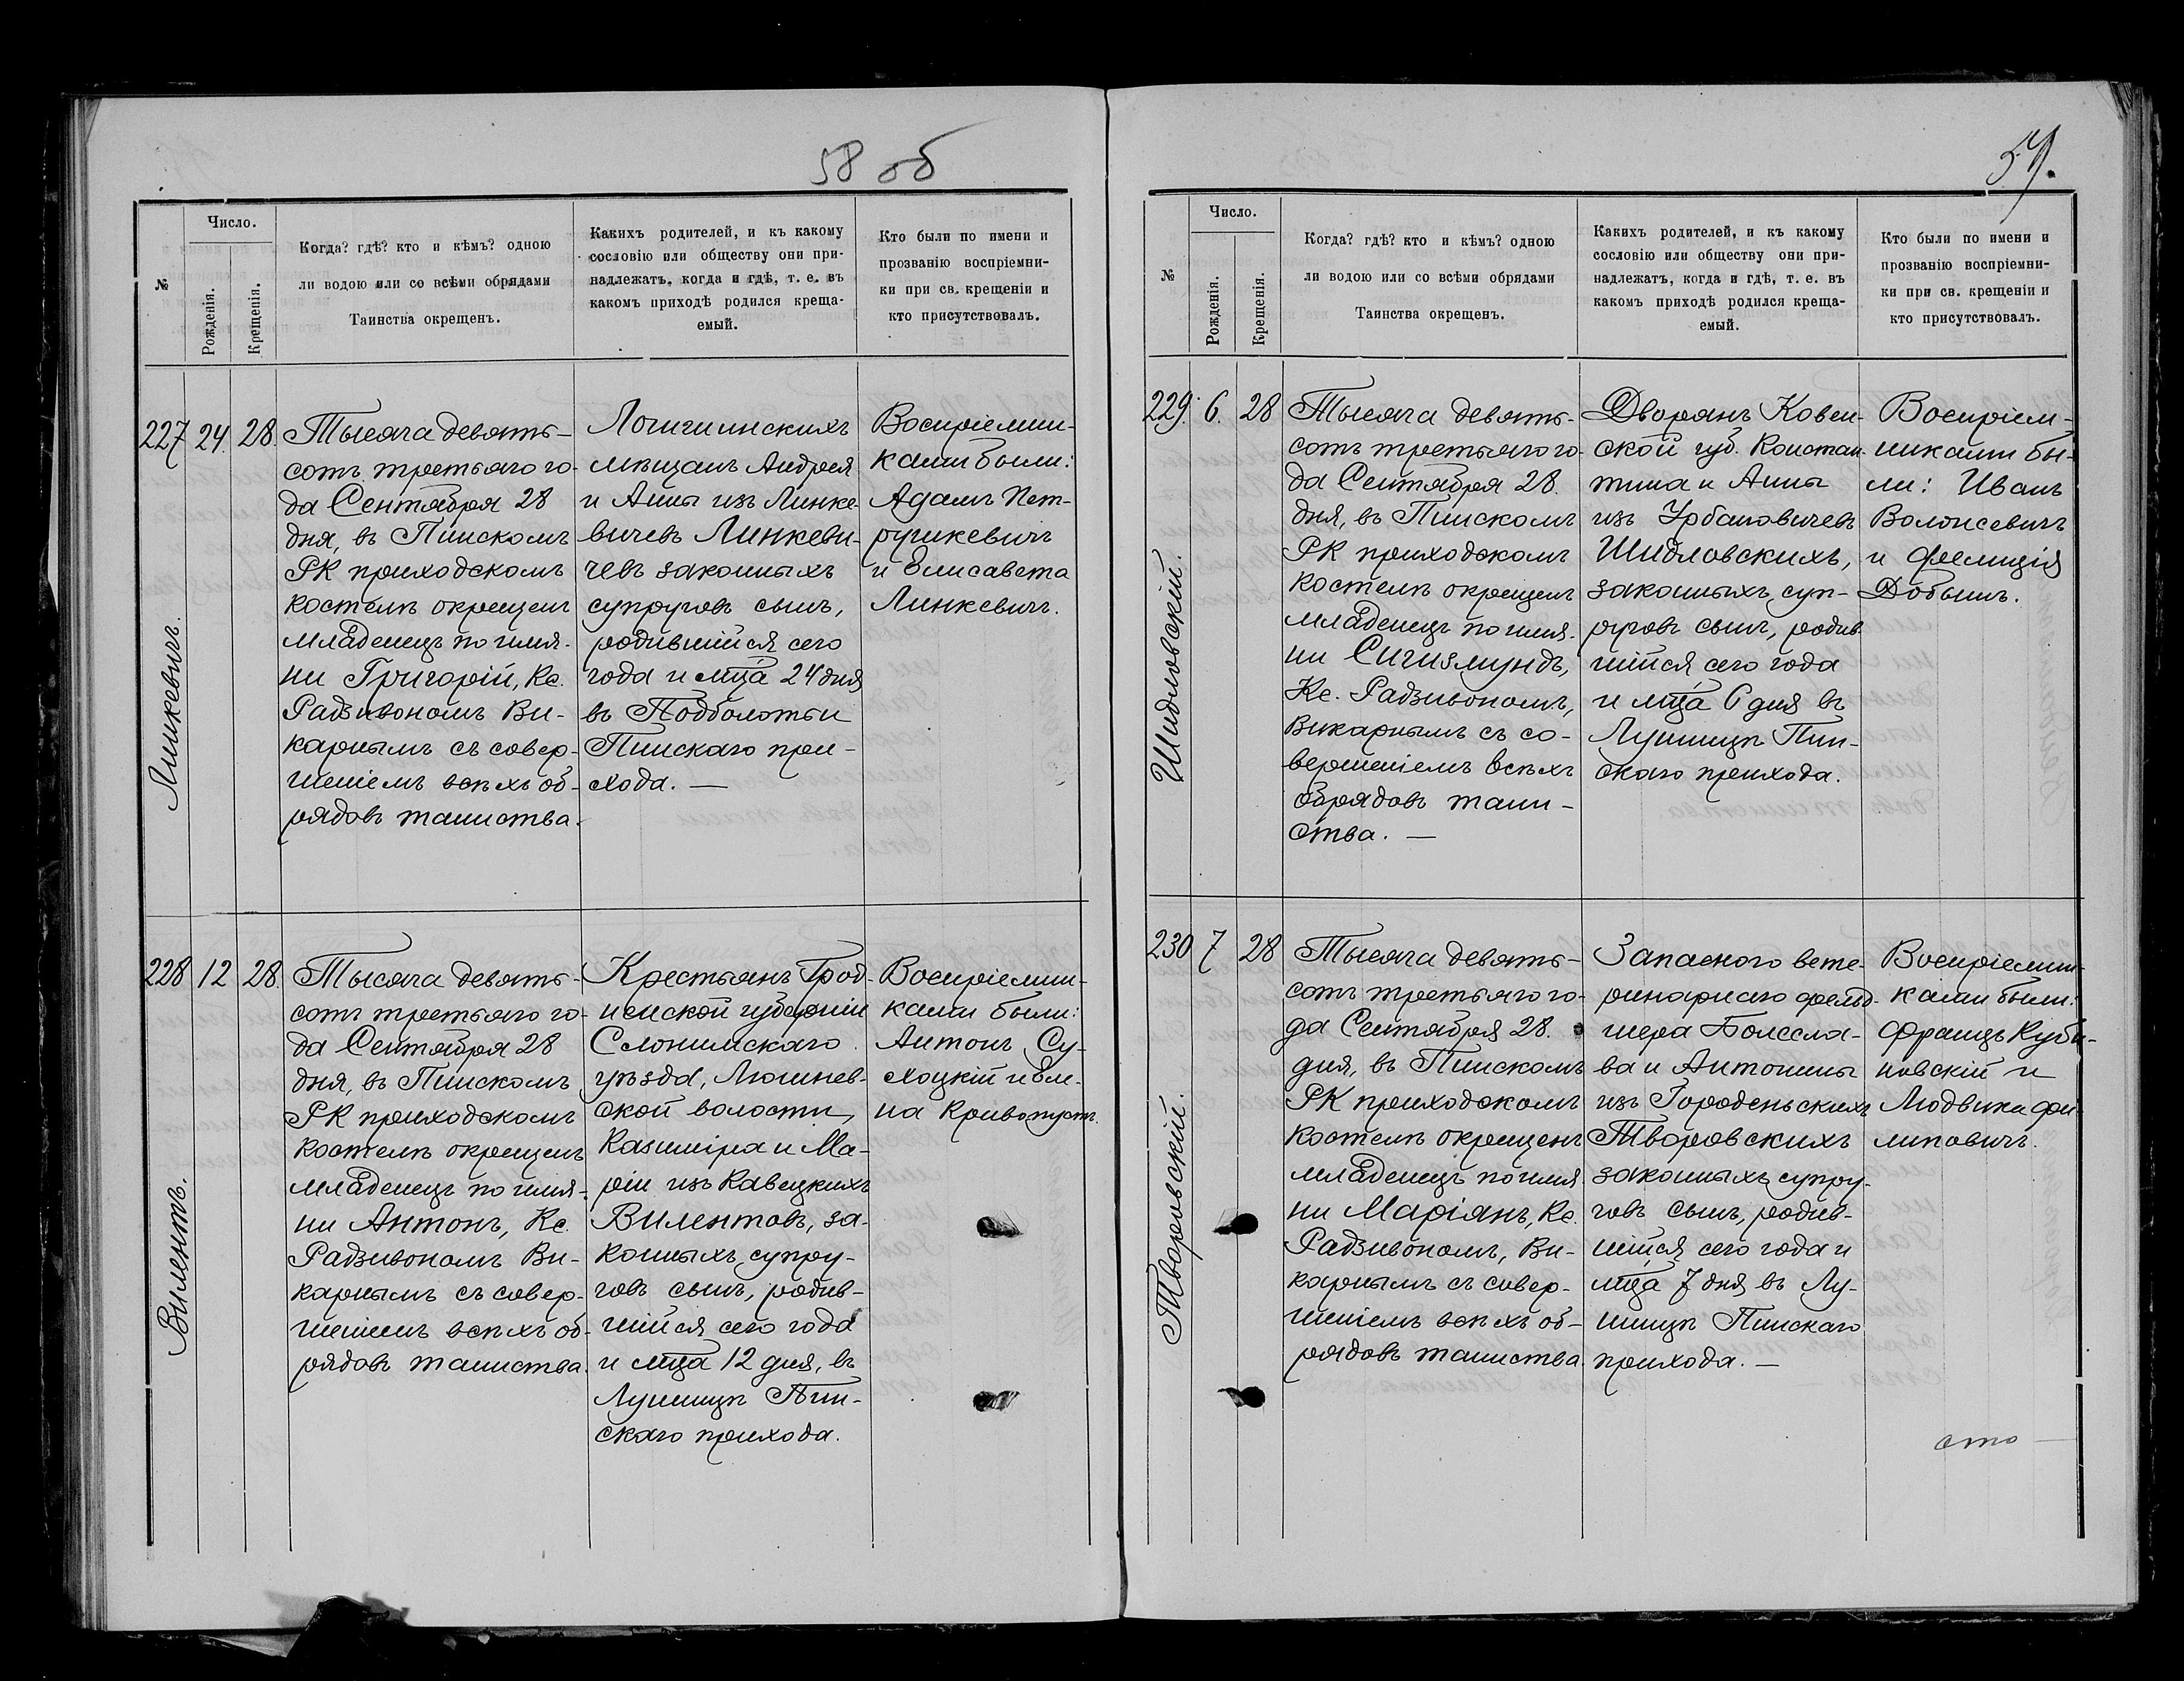 58 об
№
Число.
Рожденія.
Крещенія.
Когда? гдѣ? кто и кѣмъ? одною
ли водою или со всѣми обрядами
Таинства окрещенъ.
Какихъ родителей, и къ какому
сословію или обществу они при-
надлежатъ, когда и гдѣ, т. е. въ
какомъ приходѣ родился креща-
емый.
Кто были по имени и
прозванію воспріемни-
ки при св. крещеніи и
кто присутствовалъ.
227 24. 28.
Линкевичъ.
Тысяча девять-
сотъ третьяго го-
да Сентября 28
дня, въ Пинскомъ
РК приходскомъ
костелѣ окрещенъ
младенецъ по имя-
ни Григорій, Кс.
Радзивономъ Ви-
карнымъ съ совер-
шеніемъ всѣхъ об-
рядовъ таинства.
Логишинскихъ
мѣщанъ Андрея
и Анны изъ Линке-
вичевъ Линкеви-
чевъ законныхъ
супруговъ сынъ,
родившійся сего
года и мца 24 дня
въ Подболотьи
Пинскаго при-
хода. —
Воспріемни-
ками были:
Адамъ Пет-
рушкевичъ
и Елисавета
Линкевичъ.
228 12 28.
Вилентъ.
Тысяча девять-
сотъ третьяго го-
да Сентября 28
дня, въ Пинскомъ
РК приходскомъ
костелѣ окрещенъ
младенецъ по имя-
ни Антонъ, Кс.
Радзивономъ Ви-
карнымъ съ совер-
шеніемъ всѣхъ об-
рядовъ таинства.
Крестьянъ Грод-
ненской губерніи
Слонимскаго
уѣзда, Люшнев-
ской волости,
Казиміра и Ма-
ріи изъ Кавецкихъ
Вилентовъ, за-
конныхъ супру-
говъ сынъ, родив-
шійся сего года
и мца 12 дня, въ
Лунинцѣ Пин-
скаго прихода.
Воспріемни-
ками были:
Антонъ Су-
хоцкій и Еле-
на Кривопустъ.
59.
№
Число.
Рожденія.
Крещенія.
Когда? гдѣ? кто и кѣмъ? одною
ли водою или со всѣми обрядами
Таинства окрещенъ.
Какихъ родителей, и къ какому
сословію или обществу они при-
надлежатъ, когда и гдѣ, т. е. въ
какомъ приходѣ родился креща-
емый.
Кто были по имени и
прозванію воспріемни-
ки при св. крещеніи и
кто присутствовалъ.
229. 6. 28
Шидловскій.
Тысяча девять-
сотъ третьяго го-
да Сентября 28.
дня, въ Пинскомъ
РК приходскомъ
костелѣ окрещенъ
младенецъ по имя-
ни Сигизмундъ,
Кс. Радзивономъ,
Викарнымъ съ со-
вершеніемъ всѣхъ
обрядовъ таин-
ства. —
Дворянъ Ковен-
ской губ. Констан-
тина и Анны
изъ Урбановичевъ
Шидловскихъ,
законныхъ суп-
руговъ сынъ, родив-
шійся сего года
и мца 6 дня въ
Лунинцѣ Пин-
скаго прихода.
Воспріем-
никами бы-
ли: Иванъ
Волонсевичъ
и Фелиція
Добышъ.
230 7 28
Творовскій.
Тысяча девять-
сотъ третьяго го-
да Сентября 28.
дня, въ Пинскомъ
РК приходскомъ
костелѣ окрещенъ
младенецъ по имя
ни Маріянъ, Кс.
Радзивономъ, Ви-
карнымъ съ совер-
шеніемъ всѣхъ об-
рядовъ таинства.
Запасного вете-
ринарнаго фельд-
шера Болесла-
ва и Антонины
изъ Городеньскихъ
Творовскихъ
законныхъ супру-
говъ сынъ, родив-
шійся сего года и
мца 7 дня въ Лу-
нинцѣ Пинскаго
прихода. —
Воспріемни-
ками были:
Францъ Куби-
новскій и
Людвика Фи-
липовичъ.
сто —